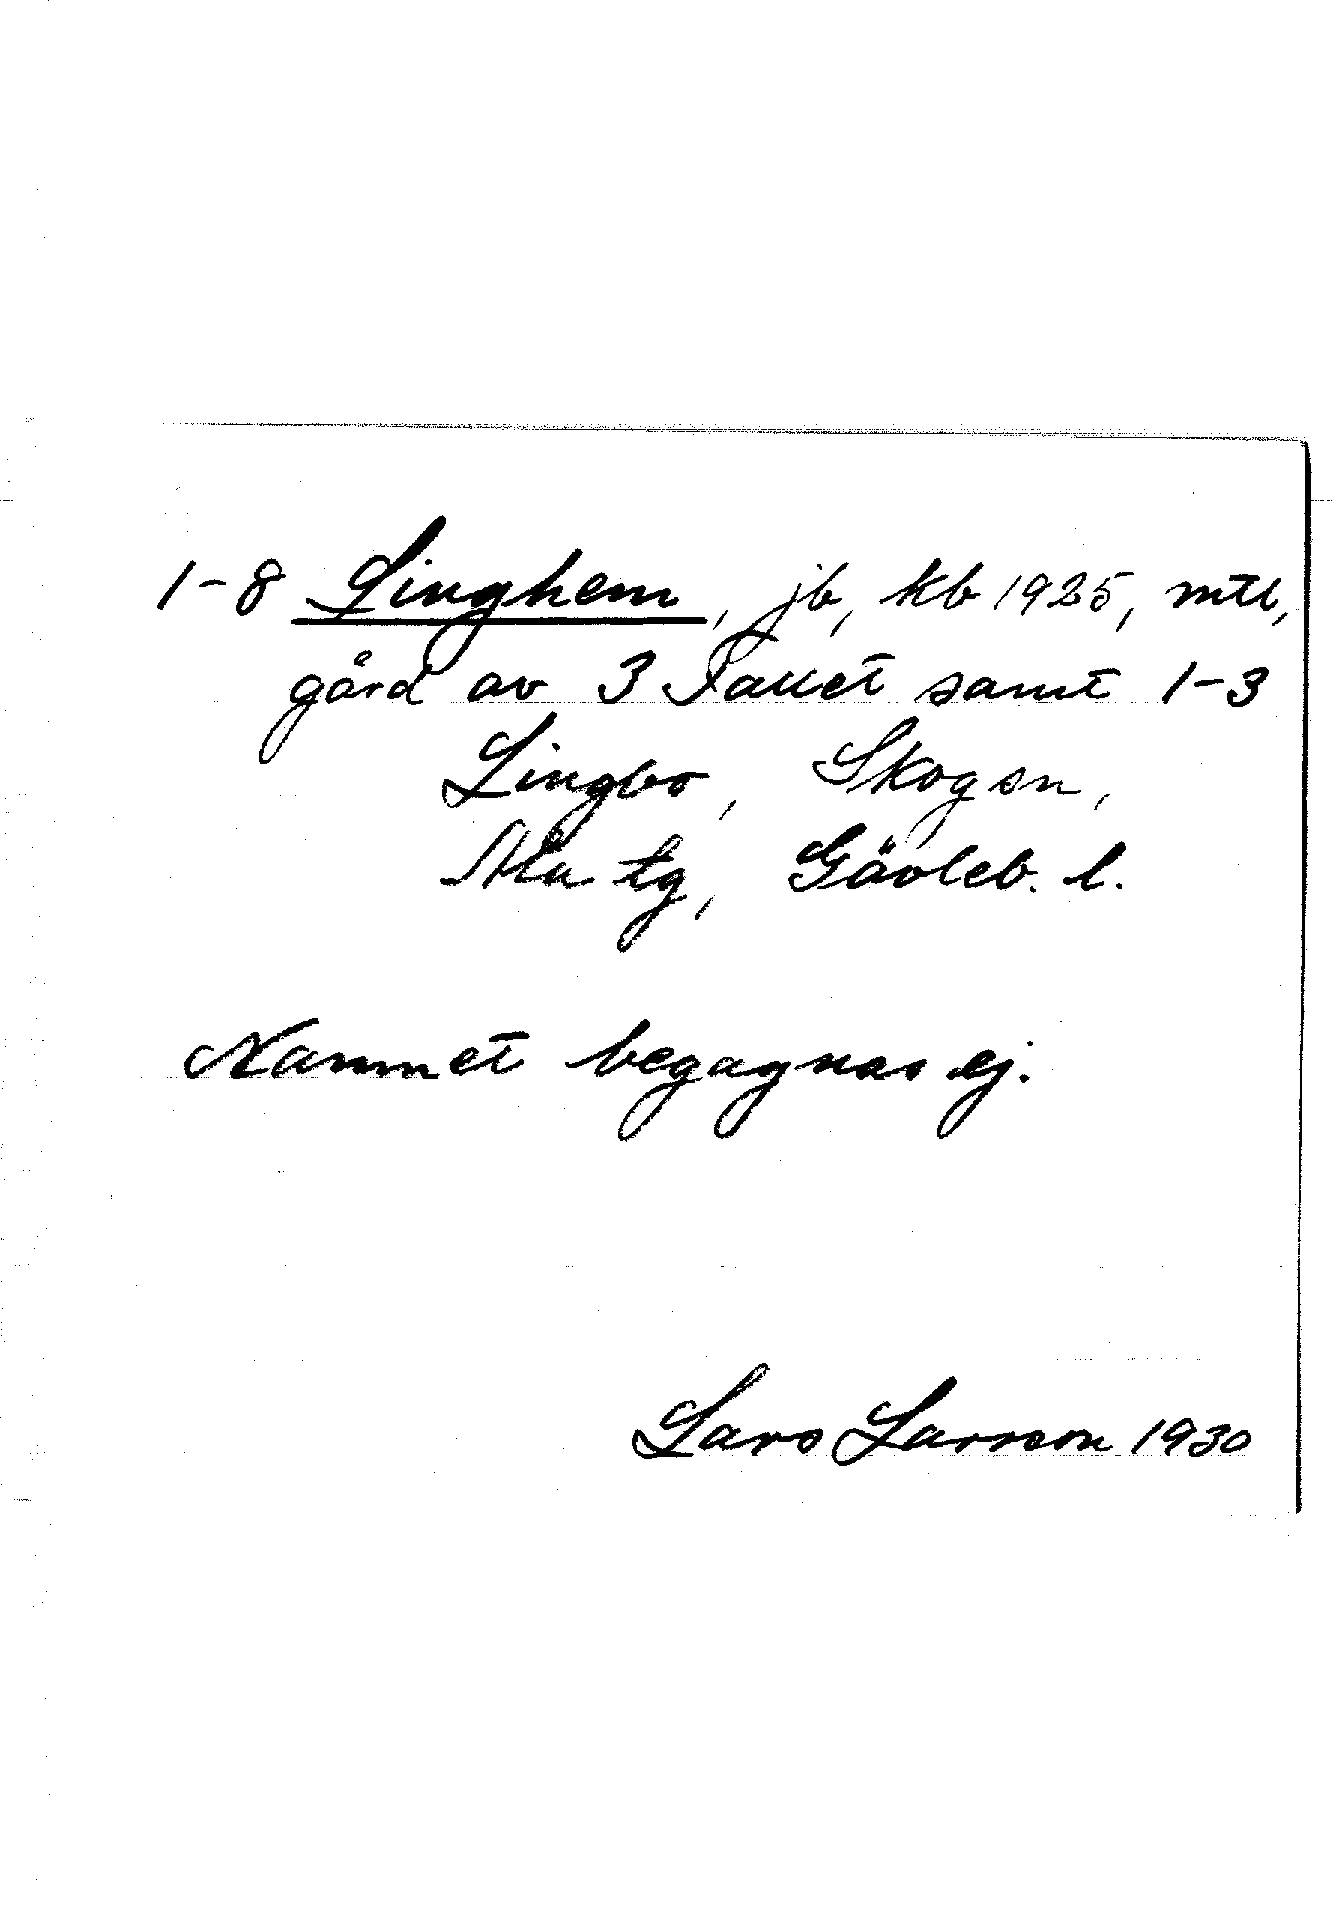 1-8 Linghem, jb, kb 1925, mtl,
gård av 3 Tallet samt 1-3
Lingbo, Skogsn,
Ala tg, Gävleb. l.
Namnet begagnas ej.
Lars Larsson 1930